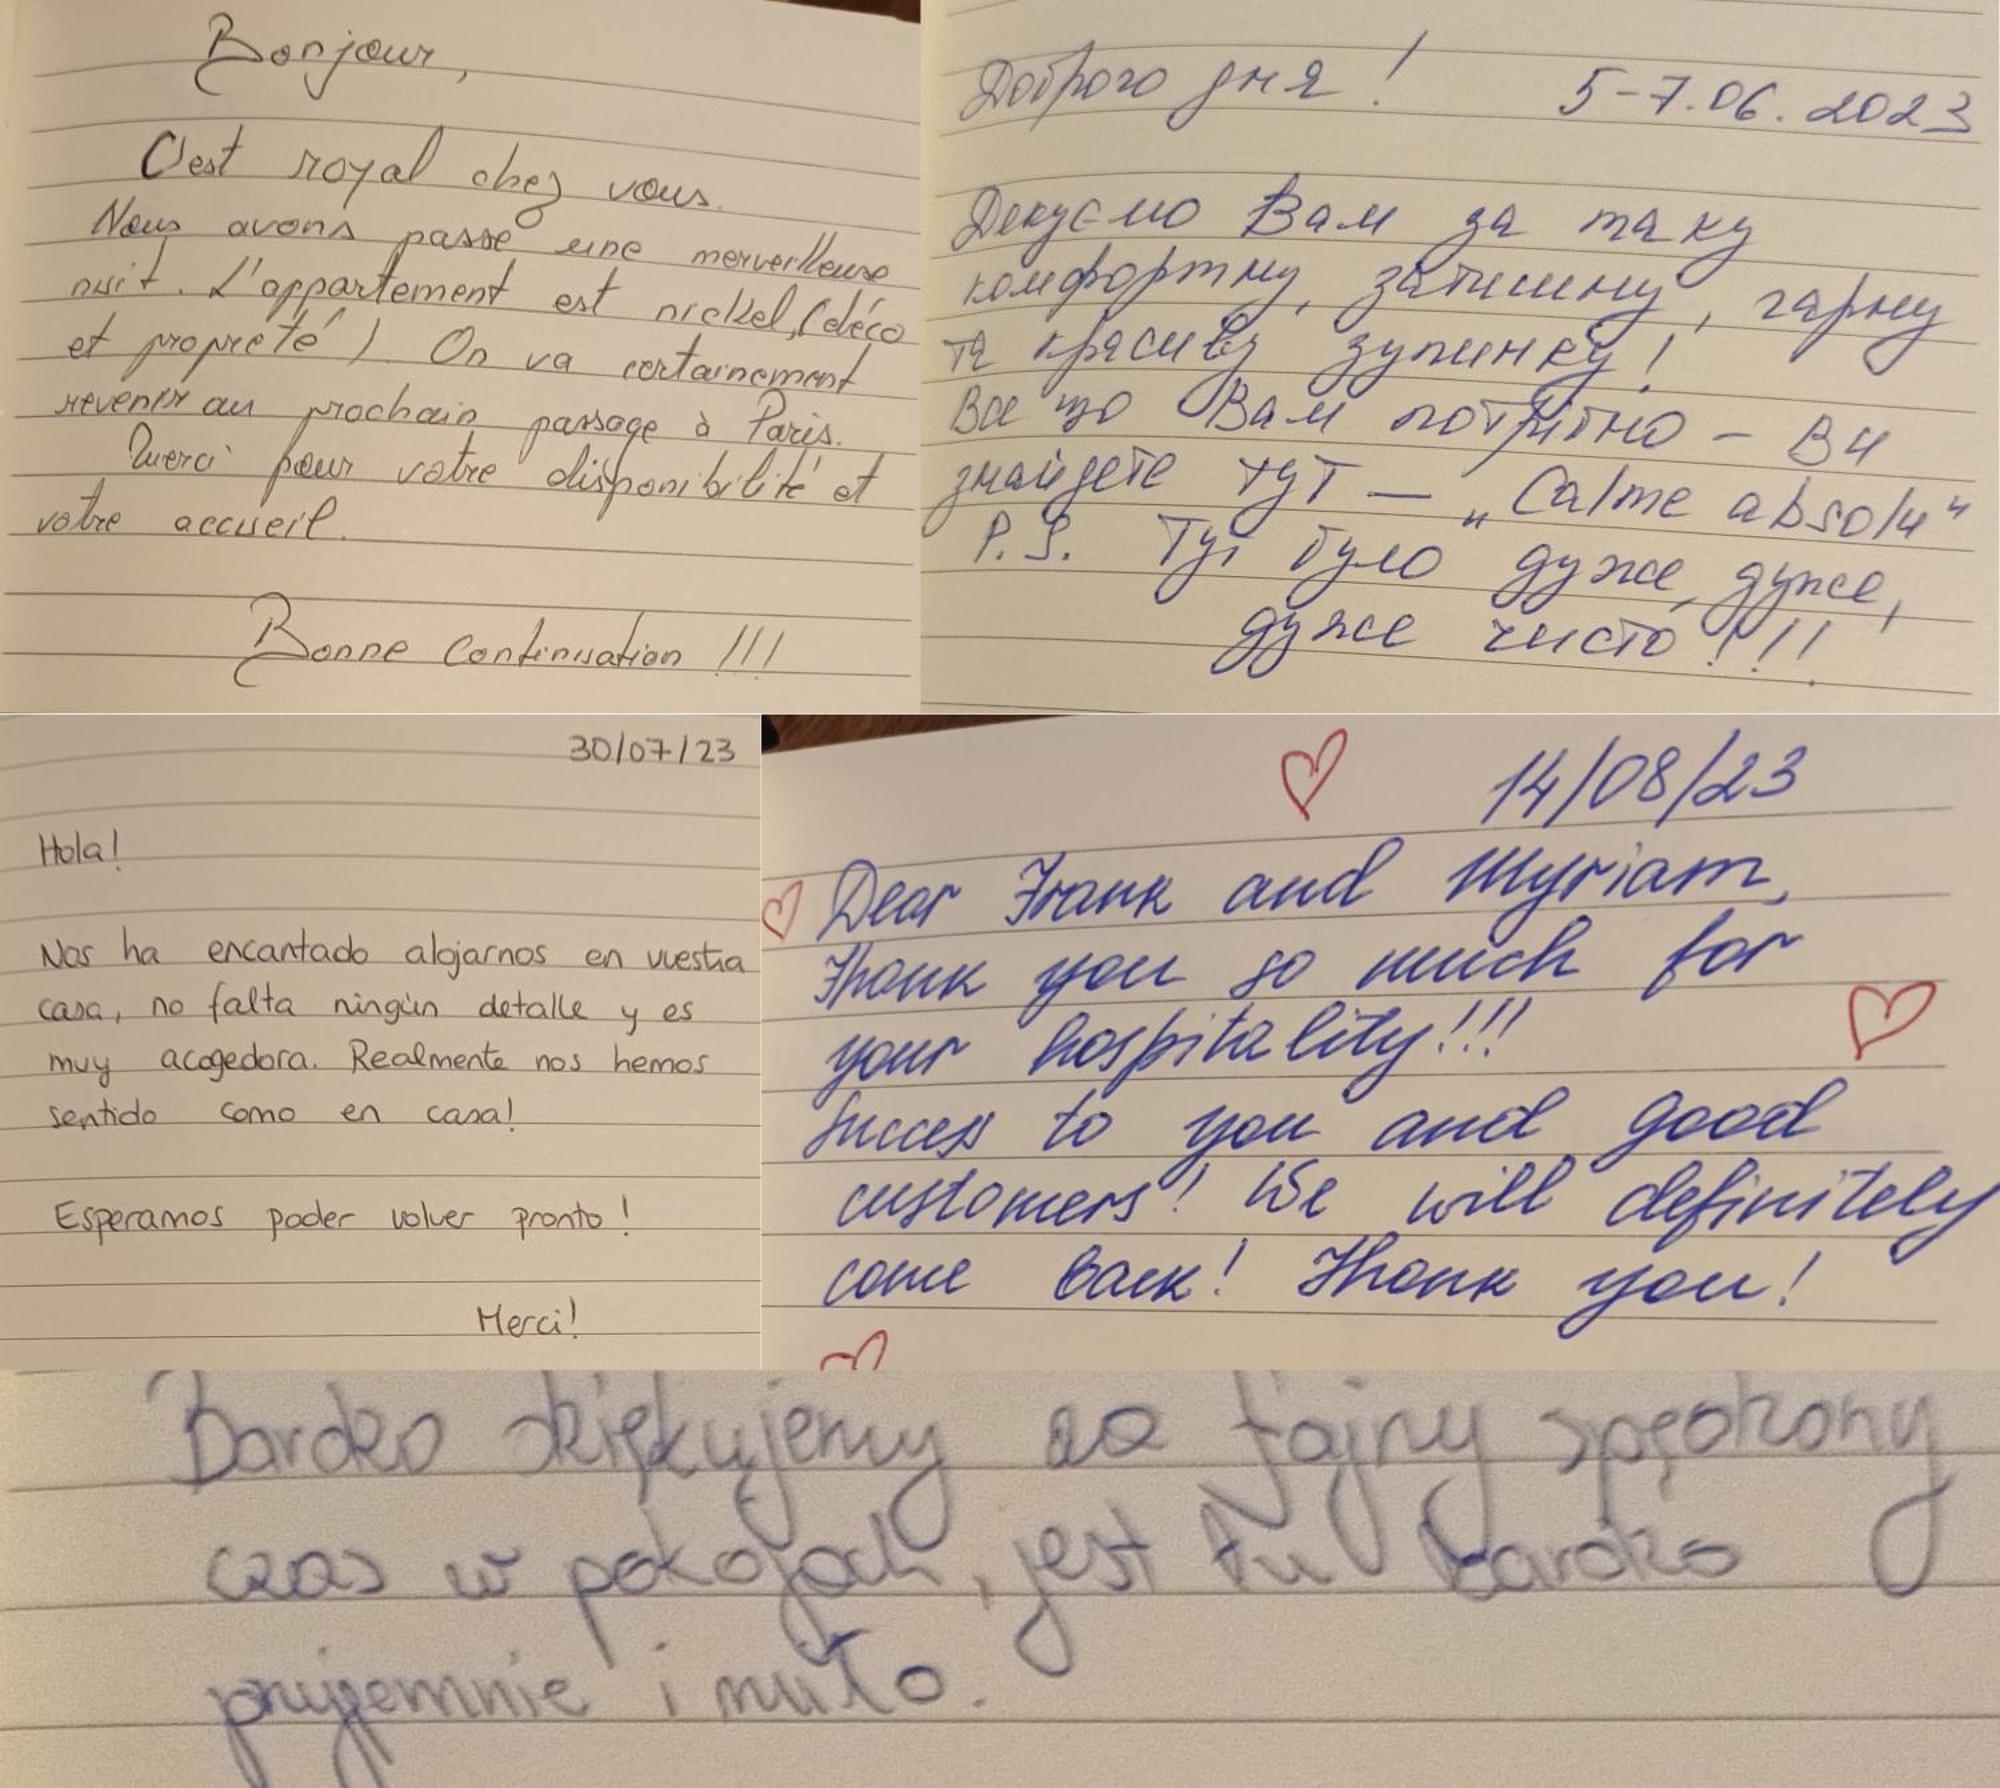 Bonjour,
C'est royal chez vous.
Nous avons passé une merveilleuse
nuit. L'appartement est nickel, (déco
et propreté). On va certainement
revenir au prochain passage à Paris.
Merci pour votre disponibilité et
votre accueil.
Bonne Continuation !!!
Доброго дня! 5-7.06.2023
Дякуємо Вам за таку
комфортну, затишну, гарну
та красиву зупинку!
Все що Вам потрібно – Ви
знайдете тут — „Calme absolu“
P.S. Тут було дуже, дуже,
дуже чисто!!!
30/07/23
Hola!
Nos ha encantado alojarnos en vuestra
casa, no falta ningún detalle y es
muy acogedora. Realmente nos hemos
sentido como en casa!
Esperamos poder volver pronto!
Merci!
14/08/23
Dear Frank and Myriam,
Thank you so much for
your hospitality!!!
Success to you and good
customers! We will definitely
come back! Thank you!
Bardzo dziękujemy za fajny spędzony
czas w pokojach, jest tu bardzo
przyjemnie i miło.